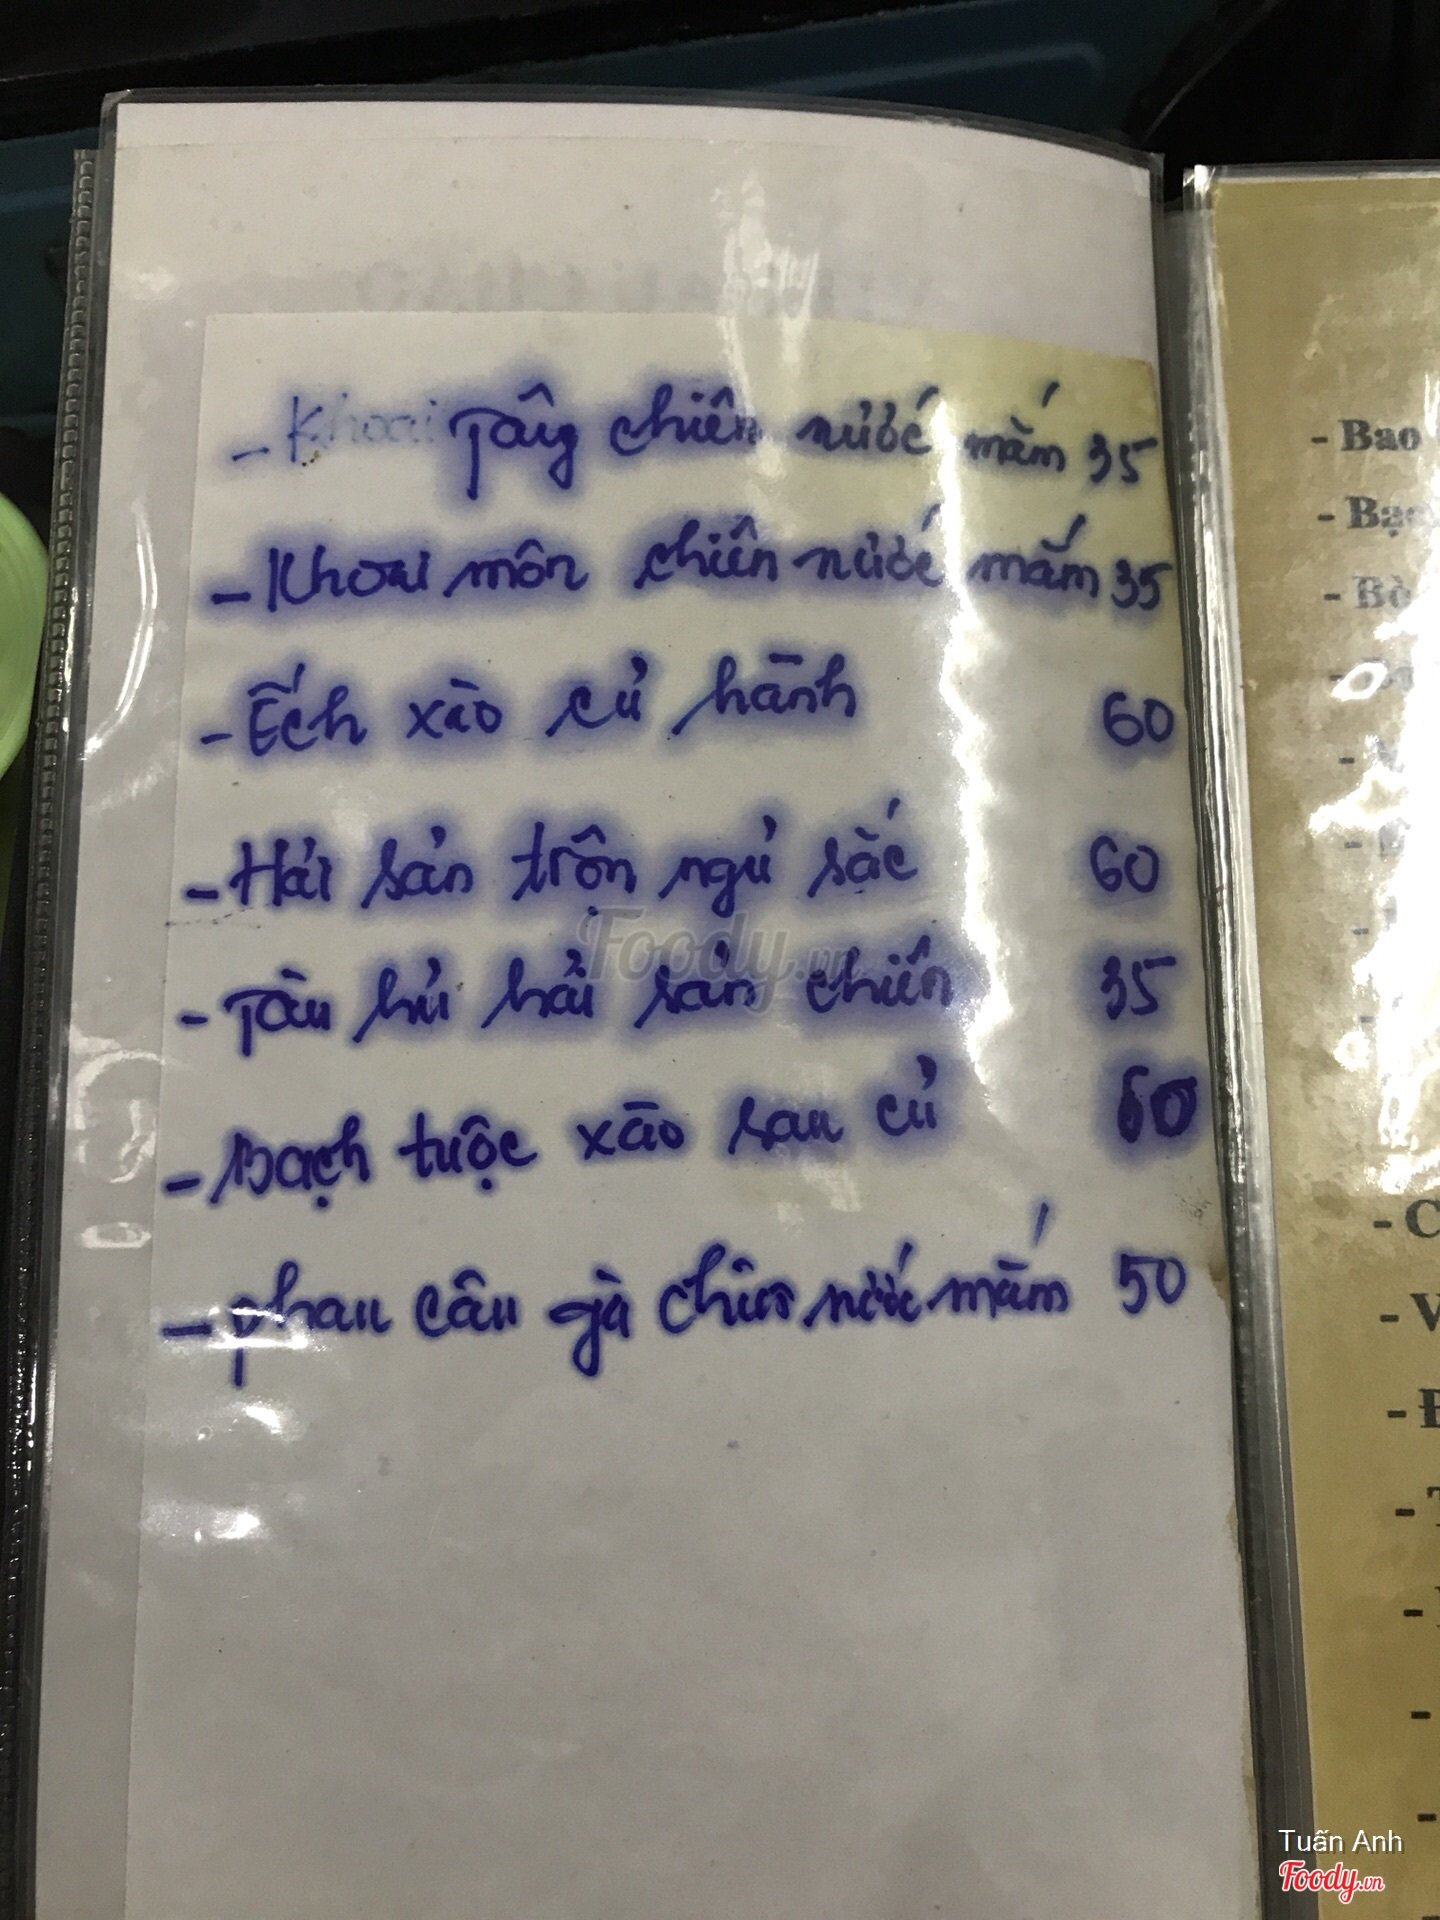 - Khoai Tây chiên nước mắm 35
- Khoai môn chiên nước mắm 35
- Ếch xào củ hành 60
- Hải sản trộn ngủ sắc 60
- Tàu hủ hải sản chiên 35
- Bạch tuộc xào sau củ 60
- phau câu gà chiên nước mắm 50
Foody.vn
- Bao
- Bạc
- Bò
- C
- V
Tuấn Anh
Foody.vn